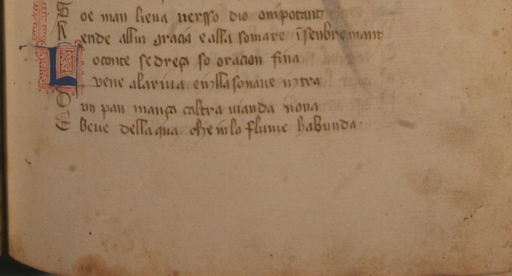 S oe man lieua uersso dio onipotant
R ende allui gracia e alla somare ī senbremant
L o conte se dreça so oracion fina
E uene ala riua en
O un pan mança caltra uianda nona
E beue della qua che in lo flume habunda